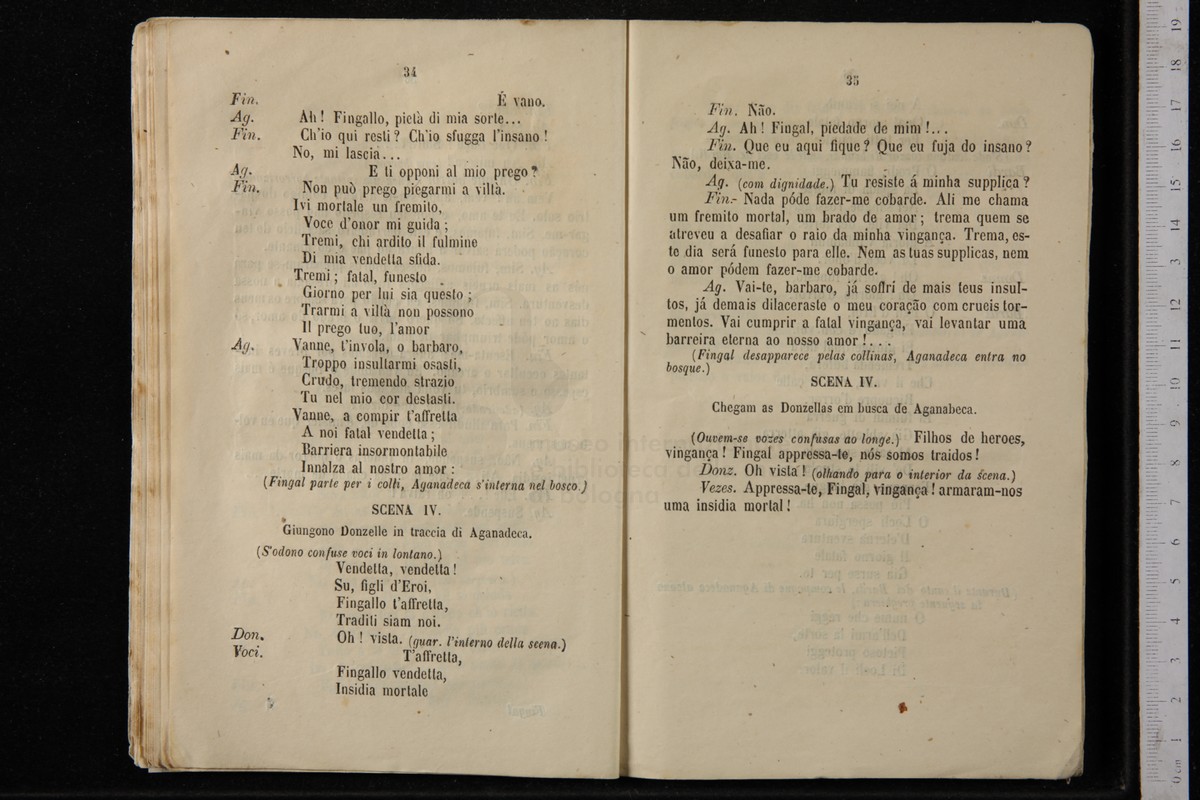 34
Fin. É vano.
Ag. Ah! Fingallo, pietà di mia sorte...
Fin. Ch'io qui resti? Ch'io sfugga l'insano!
No, mi lascia...
Ag. E ti opponi al mio prego?
Fin. Non può prego piegarmi a viltà.
Ivi mortale un fremito,
Voce d'onor mi guida;
Tremi, chi ardito il fulmine
Di mia vendetta sfida.
Tremi; fatal, funesto
Giorno per lui sia questo;
Trarmi a viltà non possono
Il prego tuo, l'amor
Ag. Vanne, t'invola, o barbaro,
Troppo insultarmi osasti,
Crudo, tremendo strazio
Tu nel mio cor destasti.
Vanne, a compir t'affretta
A noi fatal vendetta;
Barriera insormontabile
Innalza al nostro amor:
(Fingal parte per i colli, Aganadeca s'interna nel bosco.)
SCENA IV.
Giungono Donzelle in traccia di Aganadeca.
(S'odono confuse voci in lontano.)
Vendetta, vendetta!
Su, figli d'Eroi,
Fingallo t'affretta,
Traditi siam noi.
Don. Oh! vista. (guar. l'interno della scena.)
Voci. T'affretta,
Fingallo vendetta,
Insidia mortale
35
Fin. Não.
Ag. Ah! Fingal, piedade de mim!...
Fin. Que eu aqui fique? Que eu fuja do insano?
Não, deixa-me.
Ag. (com dignidade.) Tu resiste á minha supplica?
Fin.- Nada póde fazer-me cobarde. Ali me chama
um fremito mortal, um brado de amor; trema quem se
atreveu a desafiar o raio da minha vingança. Trema, es-
te dia será funesto para elle. Nem as tuas supplicas, nem
o amor pódem fazer-me cobarde.
Ag. Vai-te, barbaro, já soffri de mais teus insul-
tos, já demais dilaceraste o meu coração com crueis tor-
mentos. Vai cumprir a fatal vingança, vai levantar uma
barreira eterna ao nosso amor!...
(Fingal desapparece pelas collinas, Aganadeca entra no
bosque.)
SCENA IV.
Chegam as Donzellas em busca de Aganabeca.
(Ouvem-se vozes confusas ao longe.) Filhos de heroes,
vingança! Fingal appressa-te, nós somos traidos!
Donz. Oh vista! (olhando para o interior da scena.)
Vezes. Appressa-te, Fingal, vingança! armaram-nos
uma insidia mortal!